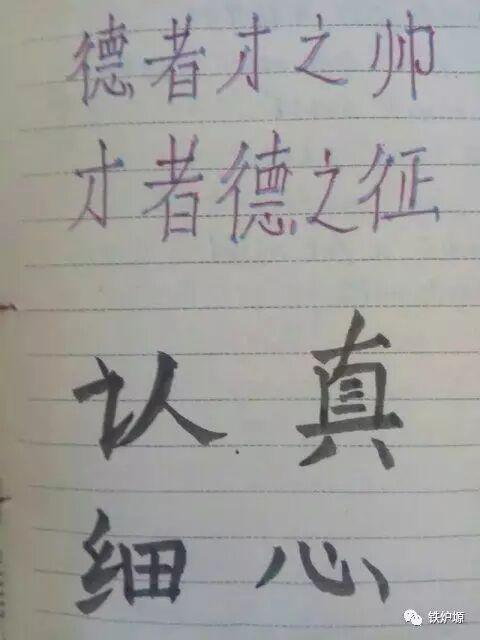 德者才之帅
才者德之征
认真
细心
铁炉塬